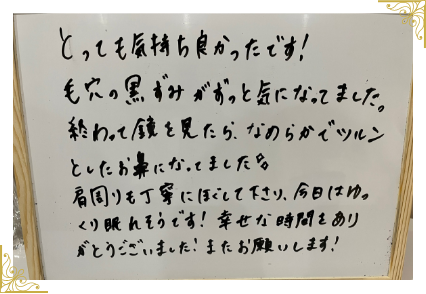 とっても気持ち良かったです!
毛穴の黒ずみがずっと気になってました。
終わって鏡を見たら、なめらかでツルン
としたお鼻になってました
肩周りも丁寧にほぐして下さり、今日はゆっ
くり眠れそうです!幸せな時間をあり
がとうございました!またお願いします!